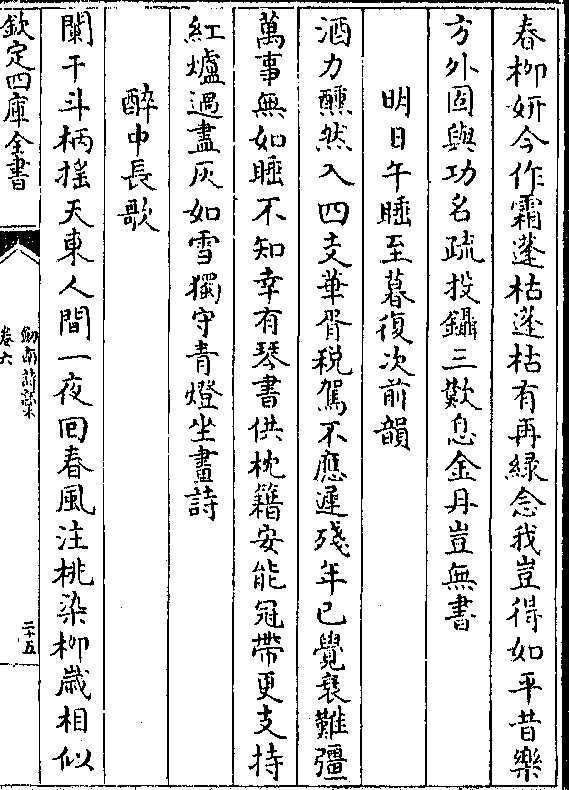 春柳姸今作霜蓬枯蓬枯有再緑念我豈得如平昔樂
方外固與功名疏投鑷三歎息金丹豈無書
明日午睡至暮復次前韻
酒力醺然入四支華胥税駕不應遲殘年已覺衰難彊
萬事無如睡不知幸有琴書供枕籍安能冠帶更支持
紅爐過盡灰如雪獨守青燈坐畫詩
醉中長歌
闌干斗柄揺天東人間一夜囘春風注桃染柳歳相似
欽定四庫全書
劍南詩藁
卷六
二十五